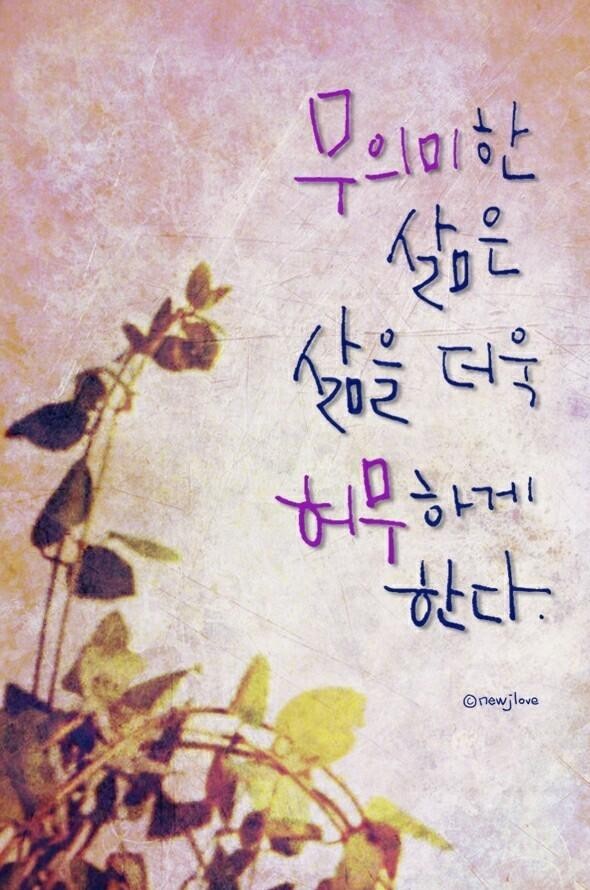 무의미한
삶은
삶을 더욱
허무하게
한다.
©newjlove